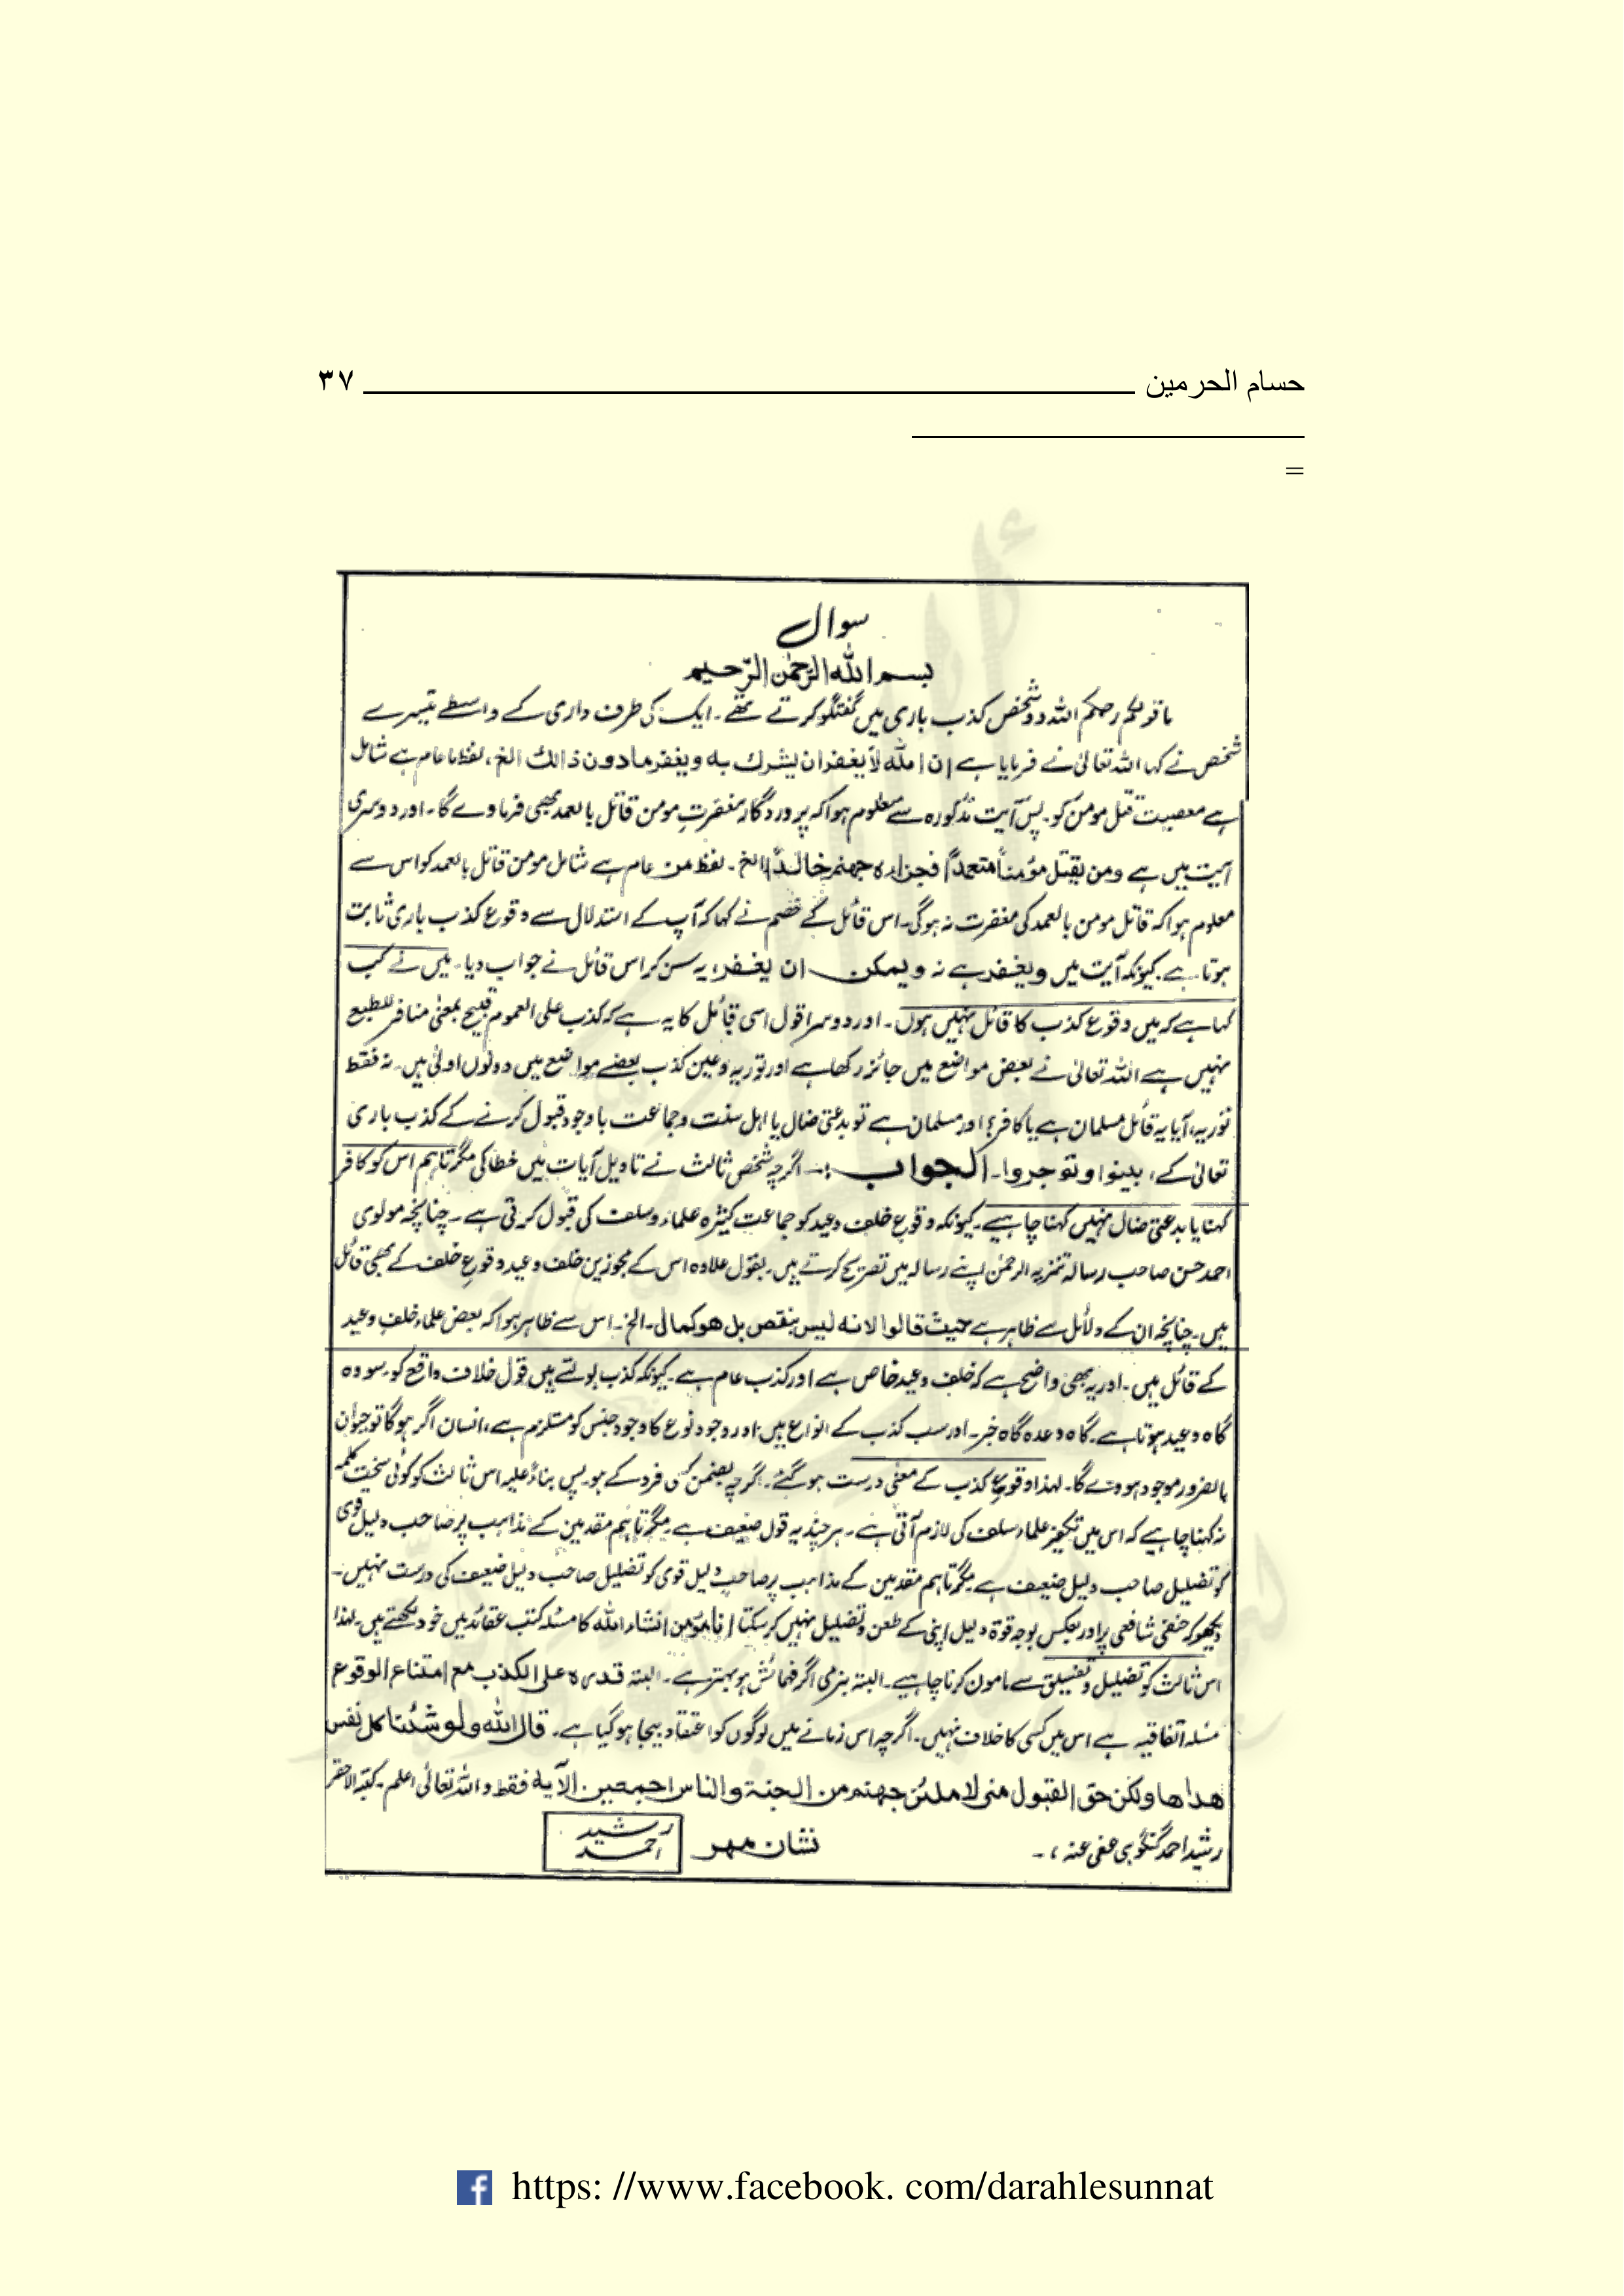 حسام الحرمين ٣٧
=
سوال
بسم الله الرحمٰن الرّحيم
ما قولکم رحمکم اللہ دو شخص کذب باری میں گفتگو کرتے تھے۔ ایک کی طرف داری کے واسطے تیسرے
شخص نے کہا اللہ تعالیٰ نے فرمایا ہے ان الله لا يغفر ان يشرك به ويغفر مادون ذالك الخ، لفظ ما عام ہے شامل
ہے معصیت قتل مومن کو۔ پس آیت مذکورہ سے معلوم ہوا کہ پروردگار مغفرتِ مومن قاتل بالعمد بھی فرماوے گا۔ اور دوسری
آیت میں ہے ومن يقتل مؤمناً متعمداً فجزاءه جهنم خالداً الخ۔ لفظ من عام ہے شامل مومن قاتل بالعمد کو اس سے
معلوم ہوا کہ قاتل مومن بالعمد کی مغفرت نہ ہوگی۔ اس قائل کے خصم نے کہا کہ آپ کے استدلال سے وقوع کذب باری ثابت
ہوتا ہے۔ کیونکہ آیت میں ويغفر ہے نہ ويمكن ان يغفر، یہ سن کر اس قائل نے جواب دیا۔ میں نے کب
کہا ہے کہ میں وقوع کذب کا قائل نہیں ہوں۔ اور دوسرا قول اسی قائل کا یہ ہے کہ کذب علی العموم قبیح بمعنیٰ منافر للطبع
نہیں ہے اللہ تعالیٰ نے بعض مواضع میں جائز رکھا ہے اور توریہ و عین کذب بعضے مواضع میں دونوں اولیٰ ہیں۔ نہ فقط
توریہ، آیا یہ قائل مسلمان ہے یا کافر؟ اور مسلمان ہے تو بدعتی ضال یا اہل سنت و جماعت باوجود قبول کرنے کے کذب باری
تعالیٰ کے، بينوا وتوجروا۔ الجواب :۔ اگرچہ شخص ثالث نے تاویل آیات میں خطا کی مگر تاہم اس کو کافر
کہنا یا بدعتی ضال نہیں کہنا چاہیے۔ کیونکہ وقوع خلف وعید کو جماعت کثیرہ علماء و سلف کی قبول کرتی ہے۔ چنانچہ مولوی
احمد حسن صاحب رسالہ تنزیہ الرحمٰن اپنے رسالہ میں تصریح کرتے ہیں۔ بقول علاوہ اس کے مجوزین خلف وعید وقوع خلف کے بھی قائل
ہیں۔ چنانچہ ان کے دلائل سے ظاہر ہے حيث قالوا لانه ليس بنقص بل هو كمال۔ الخ۔ اس سے ظاہر ہوا کہ بعض علماء خلفِ وعید
کے قائل ہیں۔ اور یہ بھی واضح ہے کہ خلف وعید خاص ہے اور کذب عام ہے۔ کیونکہ کذب بولتے ہیں قول خلاف واقع کو۔ سو وہ
گاہ وعید ہوتا ہے۔ گاہ وعدہ گاہ خبر۔ اور سب کذب کے انواع ہیں۔ اور وجود نوع کا وجود جنس کو مستلزم ہے، انسان اگر ہوگا تو حیوان
بالضرور موجود ہووے گا۔ لہذا وقوع کذب کے معنی درست ہو گئے۔ اگرچہ بضمن کسی فرد کے ہو۔ پس بناءً علیہ اس ثالث کو کوئی سخت کلمہ
نہ کہنا چاہیے کہ اس میں تکفیر علماء سلف کی لازم آتی ہے۔ ہر چند یہ قول ضعیف ہے۔ مگر تاہم مقدمین کے مذاہب پر صاحب دلیل قوی
کو تضلیل صاحب دلیل ضعیف ہے مگر تاہم مقدمین کے مذاہب پر صاحبِ دلیل قوی کو تضلیل صاحب دلیل ضعیف کی درست نہیں۔
دیکھو کہ حنفی شافعی پر اور بعکس بوجہ قوۃ دلیل اپنی کے طعن و تضلیل نہیں کر سکتا انا مؤمن انشاء اللہ کا مسئلہ کتب عقائد میں خود لکھتے ہیں۔ لہذا
اس ثالث کو تضلیل و تفسیق سے مامون کرنا چاہیے۔ البتہ بنرمی اگر فہمائش ہو بہتر ہے۔ البتہ قدرة على الكذب مع امتناع الوقوع
مسئلہ اتفاقیہ ہے اس میں کسی کا خلاف نہیں۔ اگرچہ اس زمانے میں لوگوں کو اعتقاد بیجا ہو گیا ہے۔ قال الله ولو شئنا كل نفس
هداها ولكن حق القبول منى لاملئن جهنم من الجنة والناس اجمعين۔ الآية فقط واللہ تعالیٰ اعلم۔ کتبہ الاحقر
رشید احمد گنگوہی عفی عنہ، ۔ نشان مهر رشيد احمد
https: //www.facebook. com/darahlesunnat